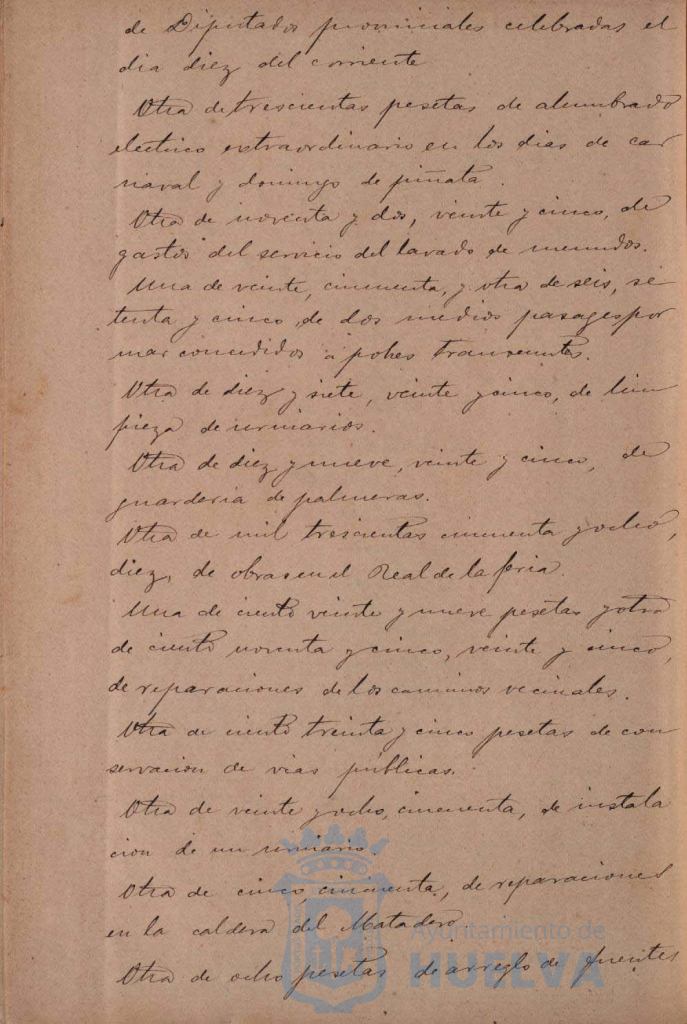 de Diputados provinciales celebradas el
dia diez del corriente
Otra de trescientas pesetas de alumbrado
electrico extraordinario en los dias de car
naval y domingo de piñata.
Otra de noventa y dos, veinte y cinco, de
gastos del servicio del lavado de menudos.
Una de veinte, cincuenta, y otra de seis, se
tenta y cinco, de dos medios pasages por
mar concedidos á pobres transeuntes.
Otra de diez y siete, veinte y cinco, de lim
pieza de urinarios.
Otra de diez y nueve, veinte y cinco, de
guarderia de palmeras.
Otra de mil trescientas cincuenta y ocho,
diez, de obras en el Real de la feria.
Una de ciento veinte y nueve pesetas y otra
de ciento noventa y cinco, veinte y cinco,
de reparaciones de los caminos vecinales.
Otra de ciento treinta y cinco pesetas de con
servacion de vias públicas.
Otra de veinte y ocho, cincuenta, de instala
cion de un urinario.
Otra de cinco, cincuenta, de reparaciones
en la caldera del Matadero
Otra de ocho pesetas de arreglo de fuentes
Ayuntamiento de
HUELVA